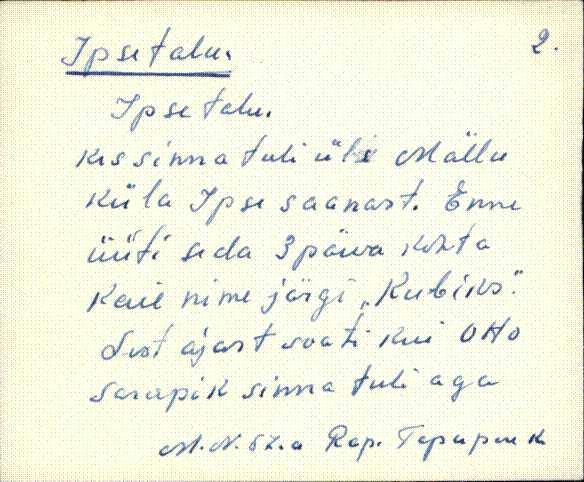 Ipse talu. 2.
Ipse talu.
kes sinna tuli üle Mällu
küla Ipse saanast. Enne
üüti seda 3 päiva kohta
Kaie nime järgi „Kubiks".
Sest ajast saati kui Otto
Sarapik sinna tuli aga
M. N. 62. a Rap.